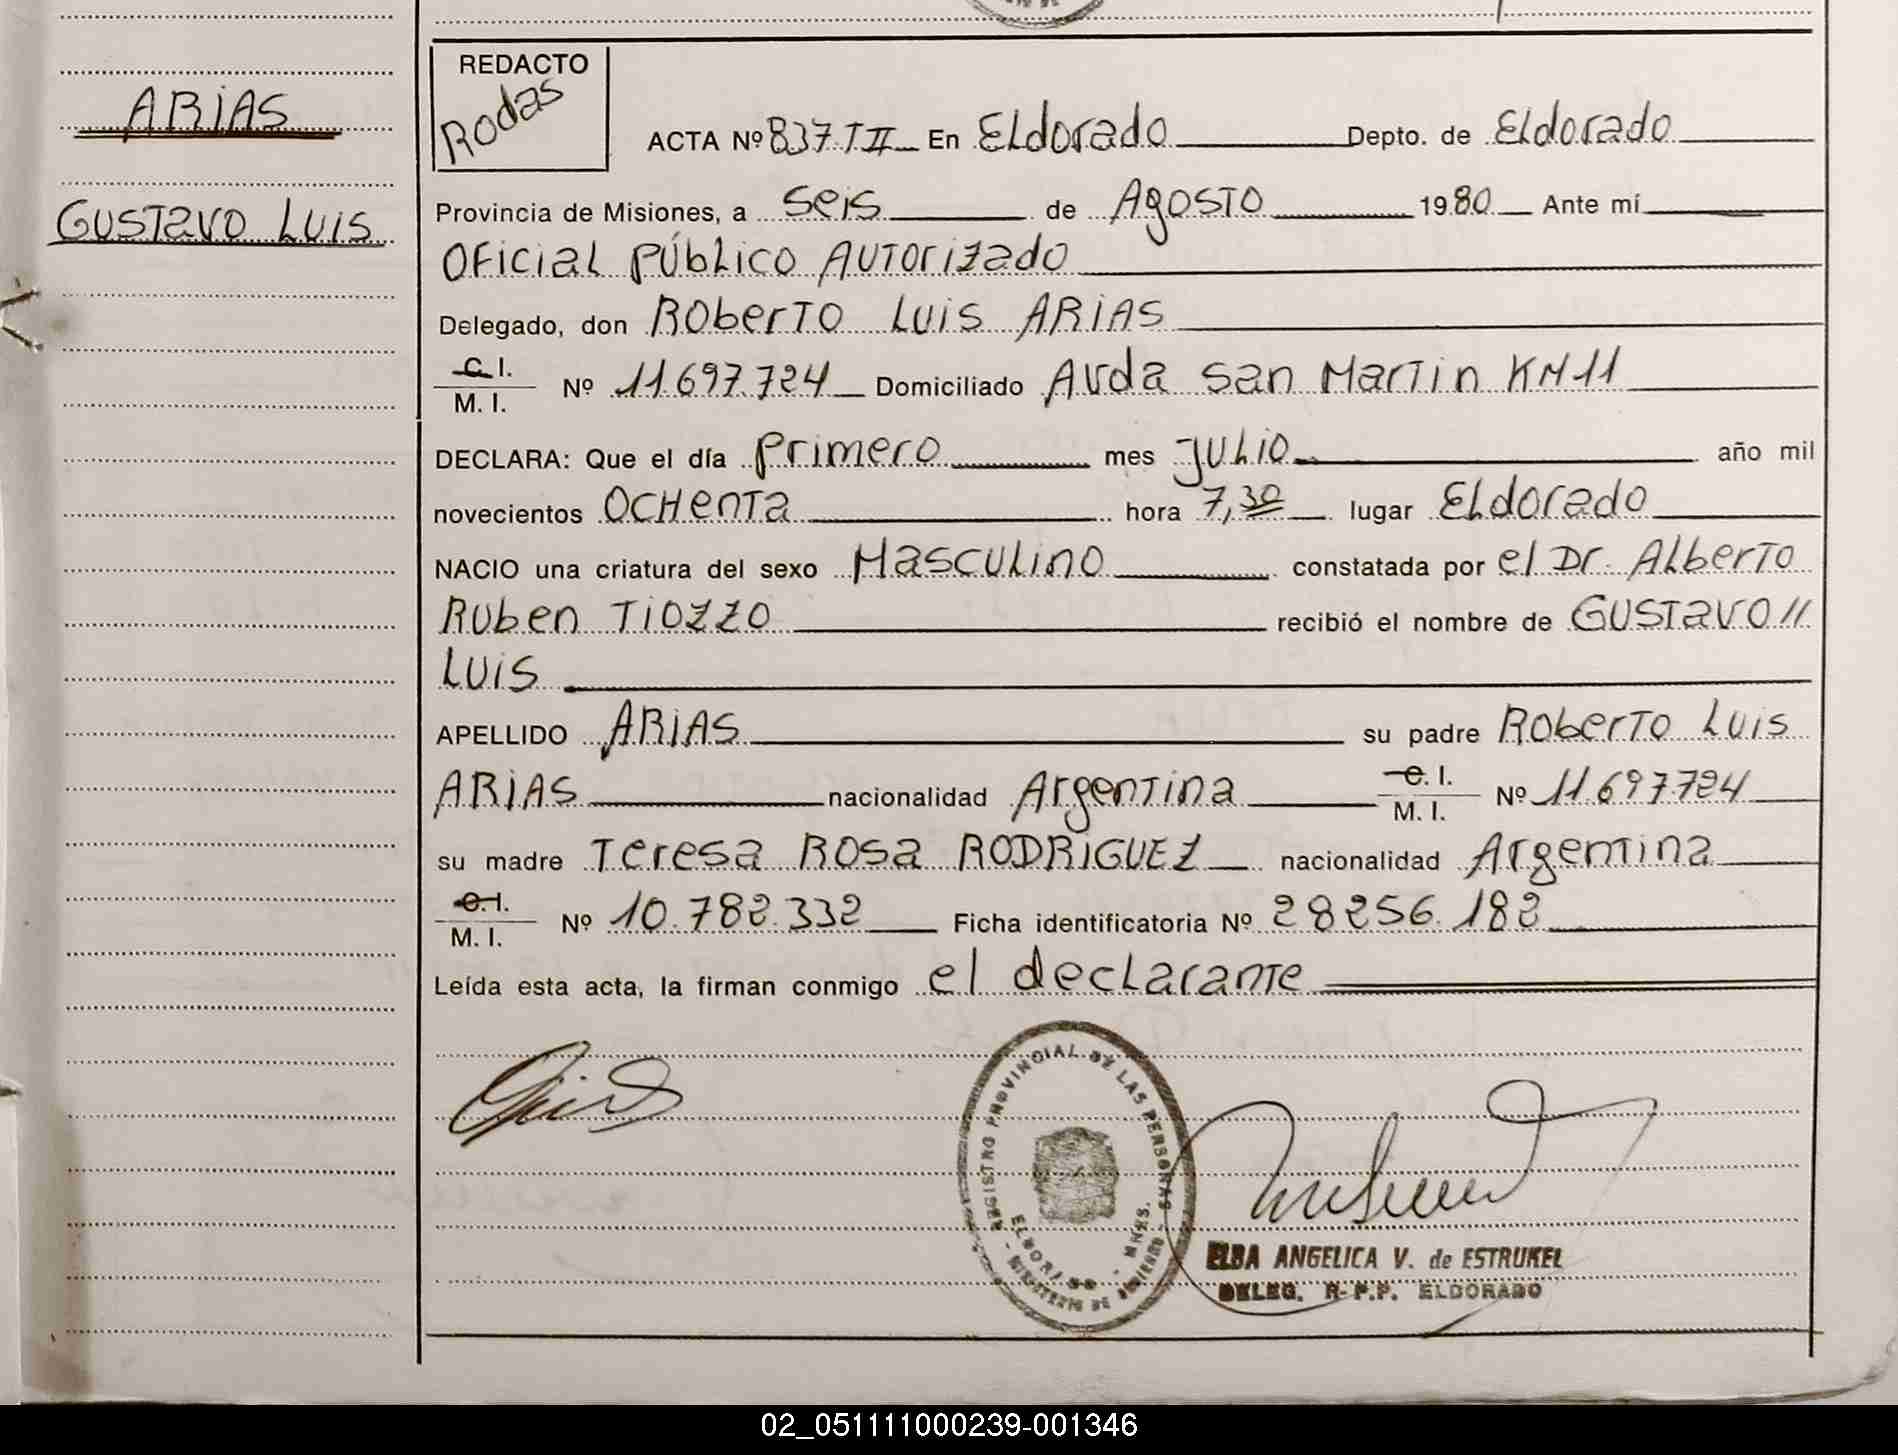 ARIAS
GUSTAVO LUIS
REDACTO
Rodas
ACTA Nº 837.TII En ELdorado Depto. de ELdorado
Provincia de Misiones, a seis de Agosto 1980 Ante mí
Oficial Público Autorizado
Delegado, don Roberto Luis ARIAS
C.I.
M. I. Nº 11.697.724 Domiciliado Avda San Martin KM11
DECLARA: Que el día primero mes Julio año mil
novecientos Ochenta hora 7,30 lugar ELdorado
NACIO una criatura del sexo Masculino constatada por el Dr. Alberto
Ruben TIOZZO recibió el nombre de GUSTAVO//
LUIS
APELLIDO ARIAS su padre Roberto Luis
ARIAS nacionalidad Argentina C.I.
M. I. Nº 11.697724
su madre Teresa Rosa RODRIGUEZ nacionalidad Argentina
C.I.
M. I. Nº 10.782.332 Ficha identificatoria Nº 28256.182
Leída esta acta, la firman conmigo el declarante
REGISTRO PROVINCIAL DE LAS PERSONAS
ELDORADO - MNES.
MINISTERIO DE GOBIERNO
ELBA ANGELICA V. de ESTRUKEL
DELEG. R.P.P. ELDORADO
02_051111000239-001346